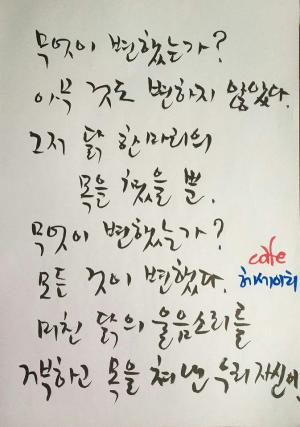 무엇이 변했는가?
아무 것도 변하지 않았다.
그저 닭 한마리의
목을 쳤을 뿐.
무엇이 변했는가?
cafe
모든 것이 변했다.
미친 닭의 울음소리를
거부하고 목을 쳐낸 우리 자신이